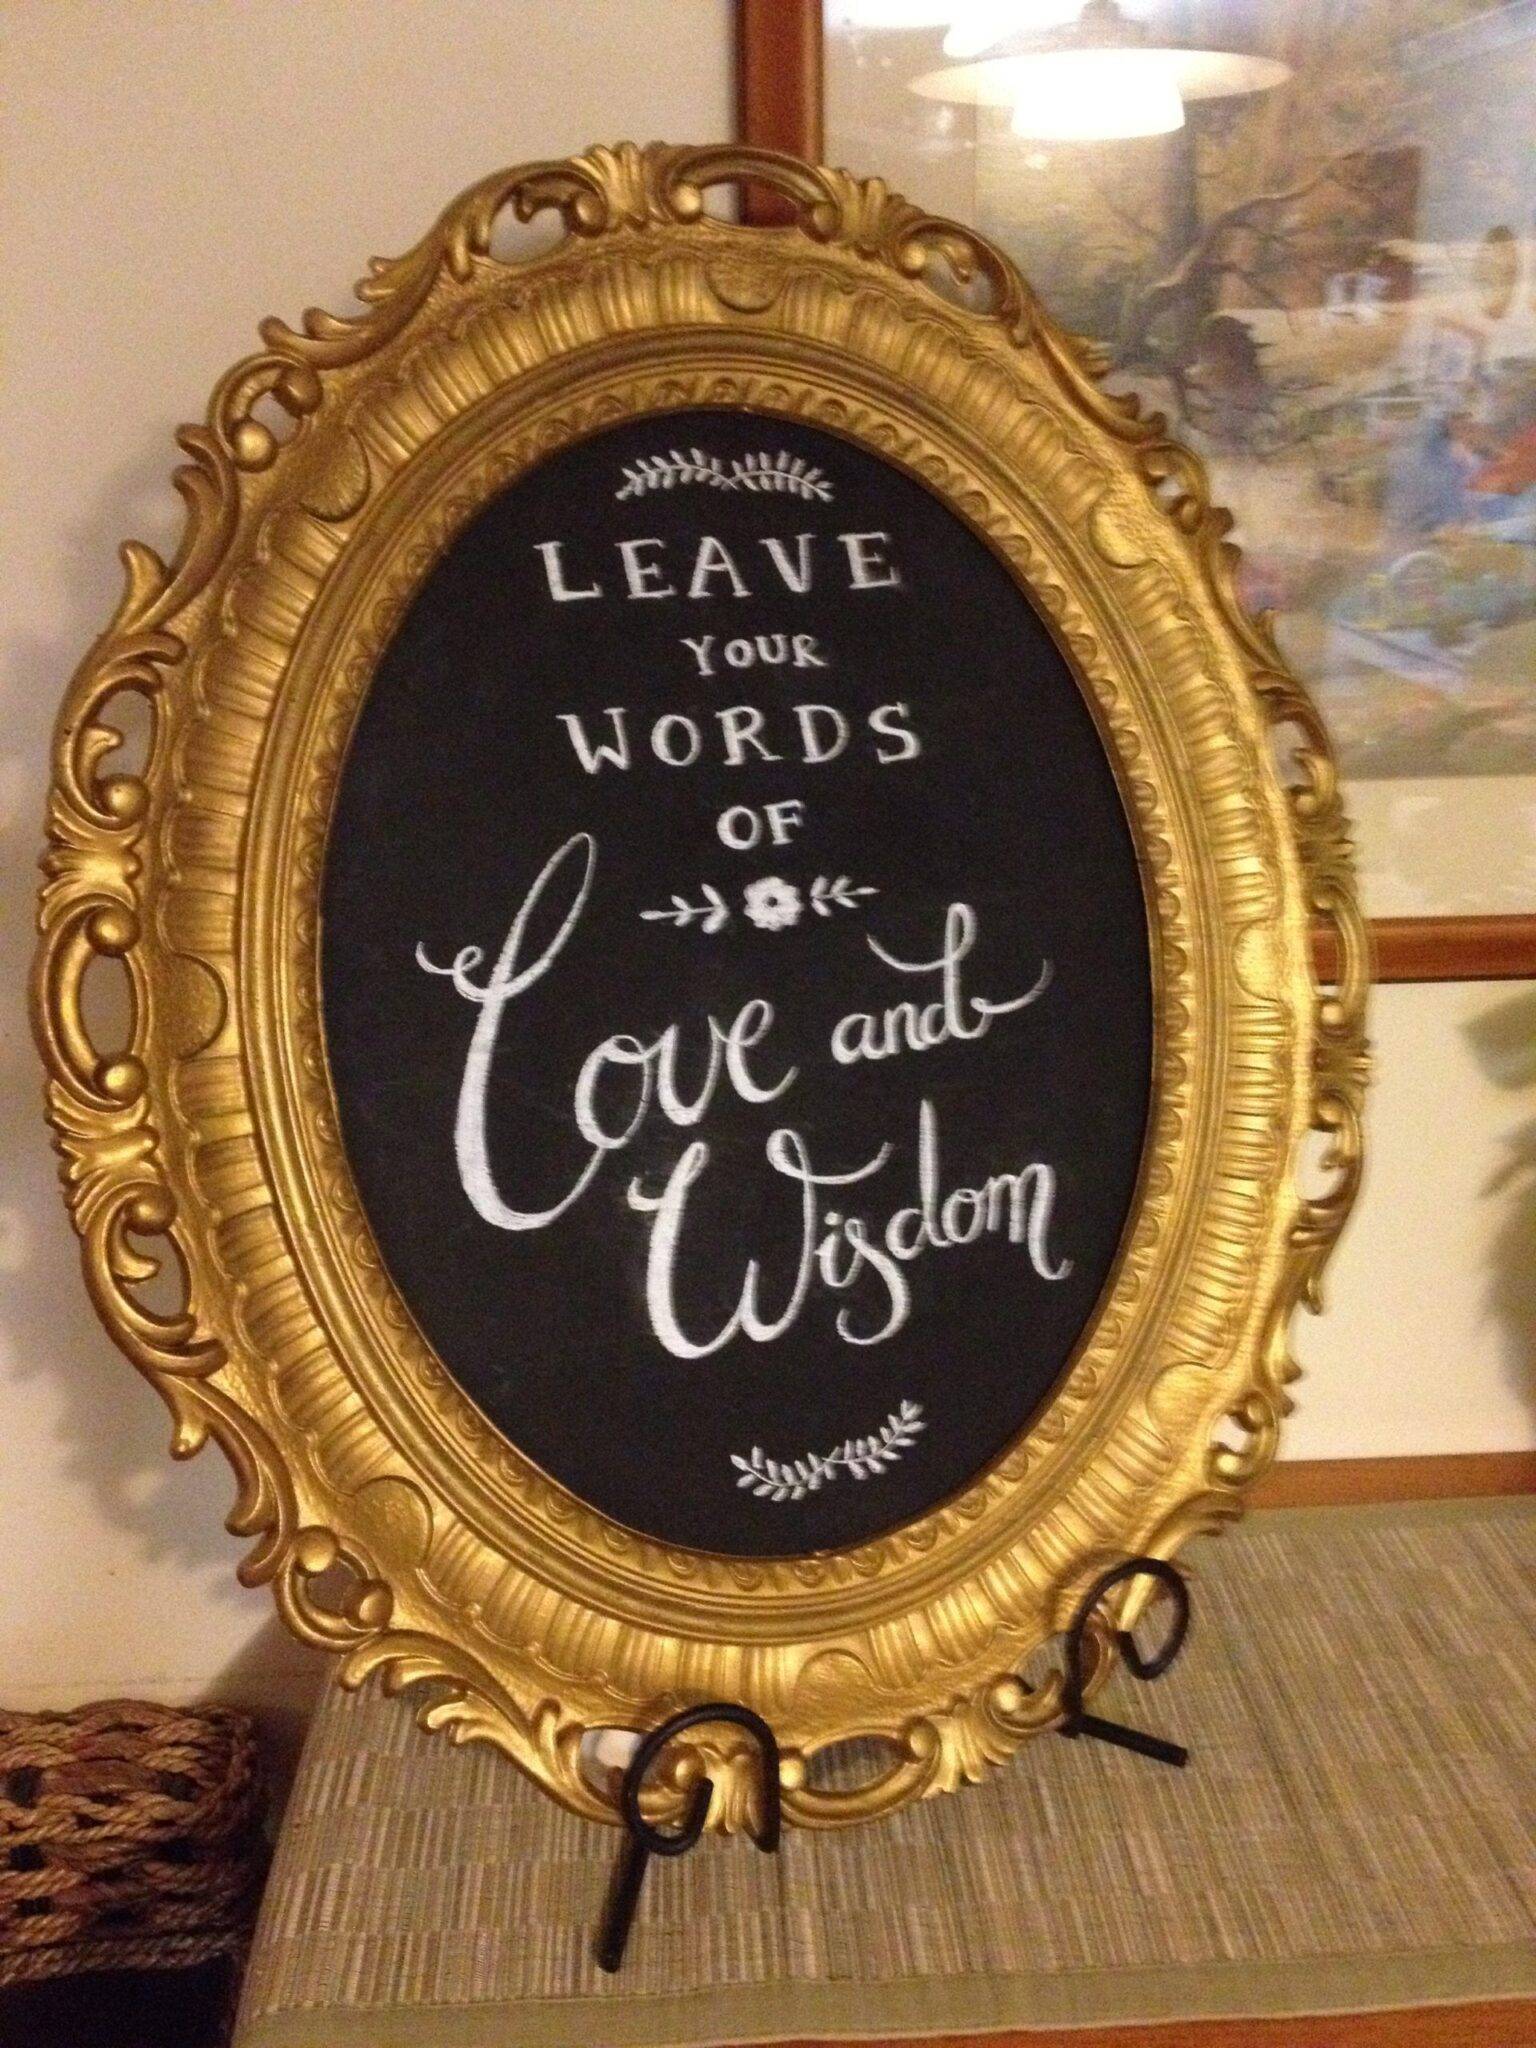 LEAVE
YOUR
WORDS
OF
Love and
Wisdom